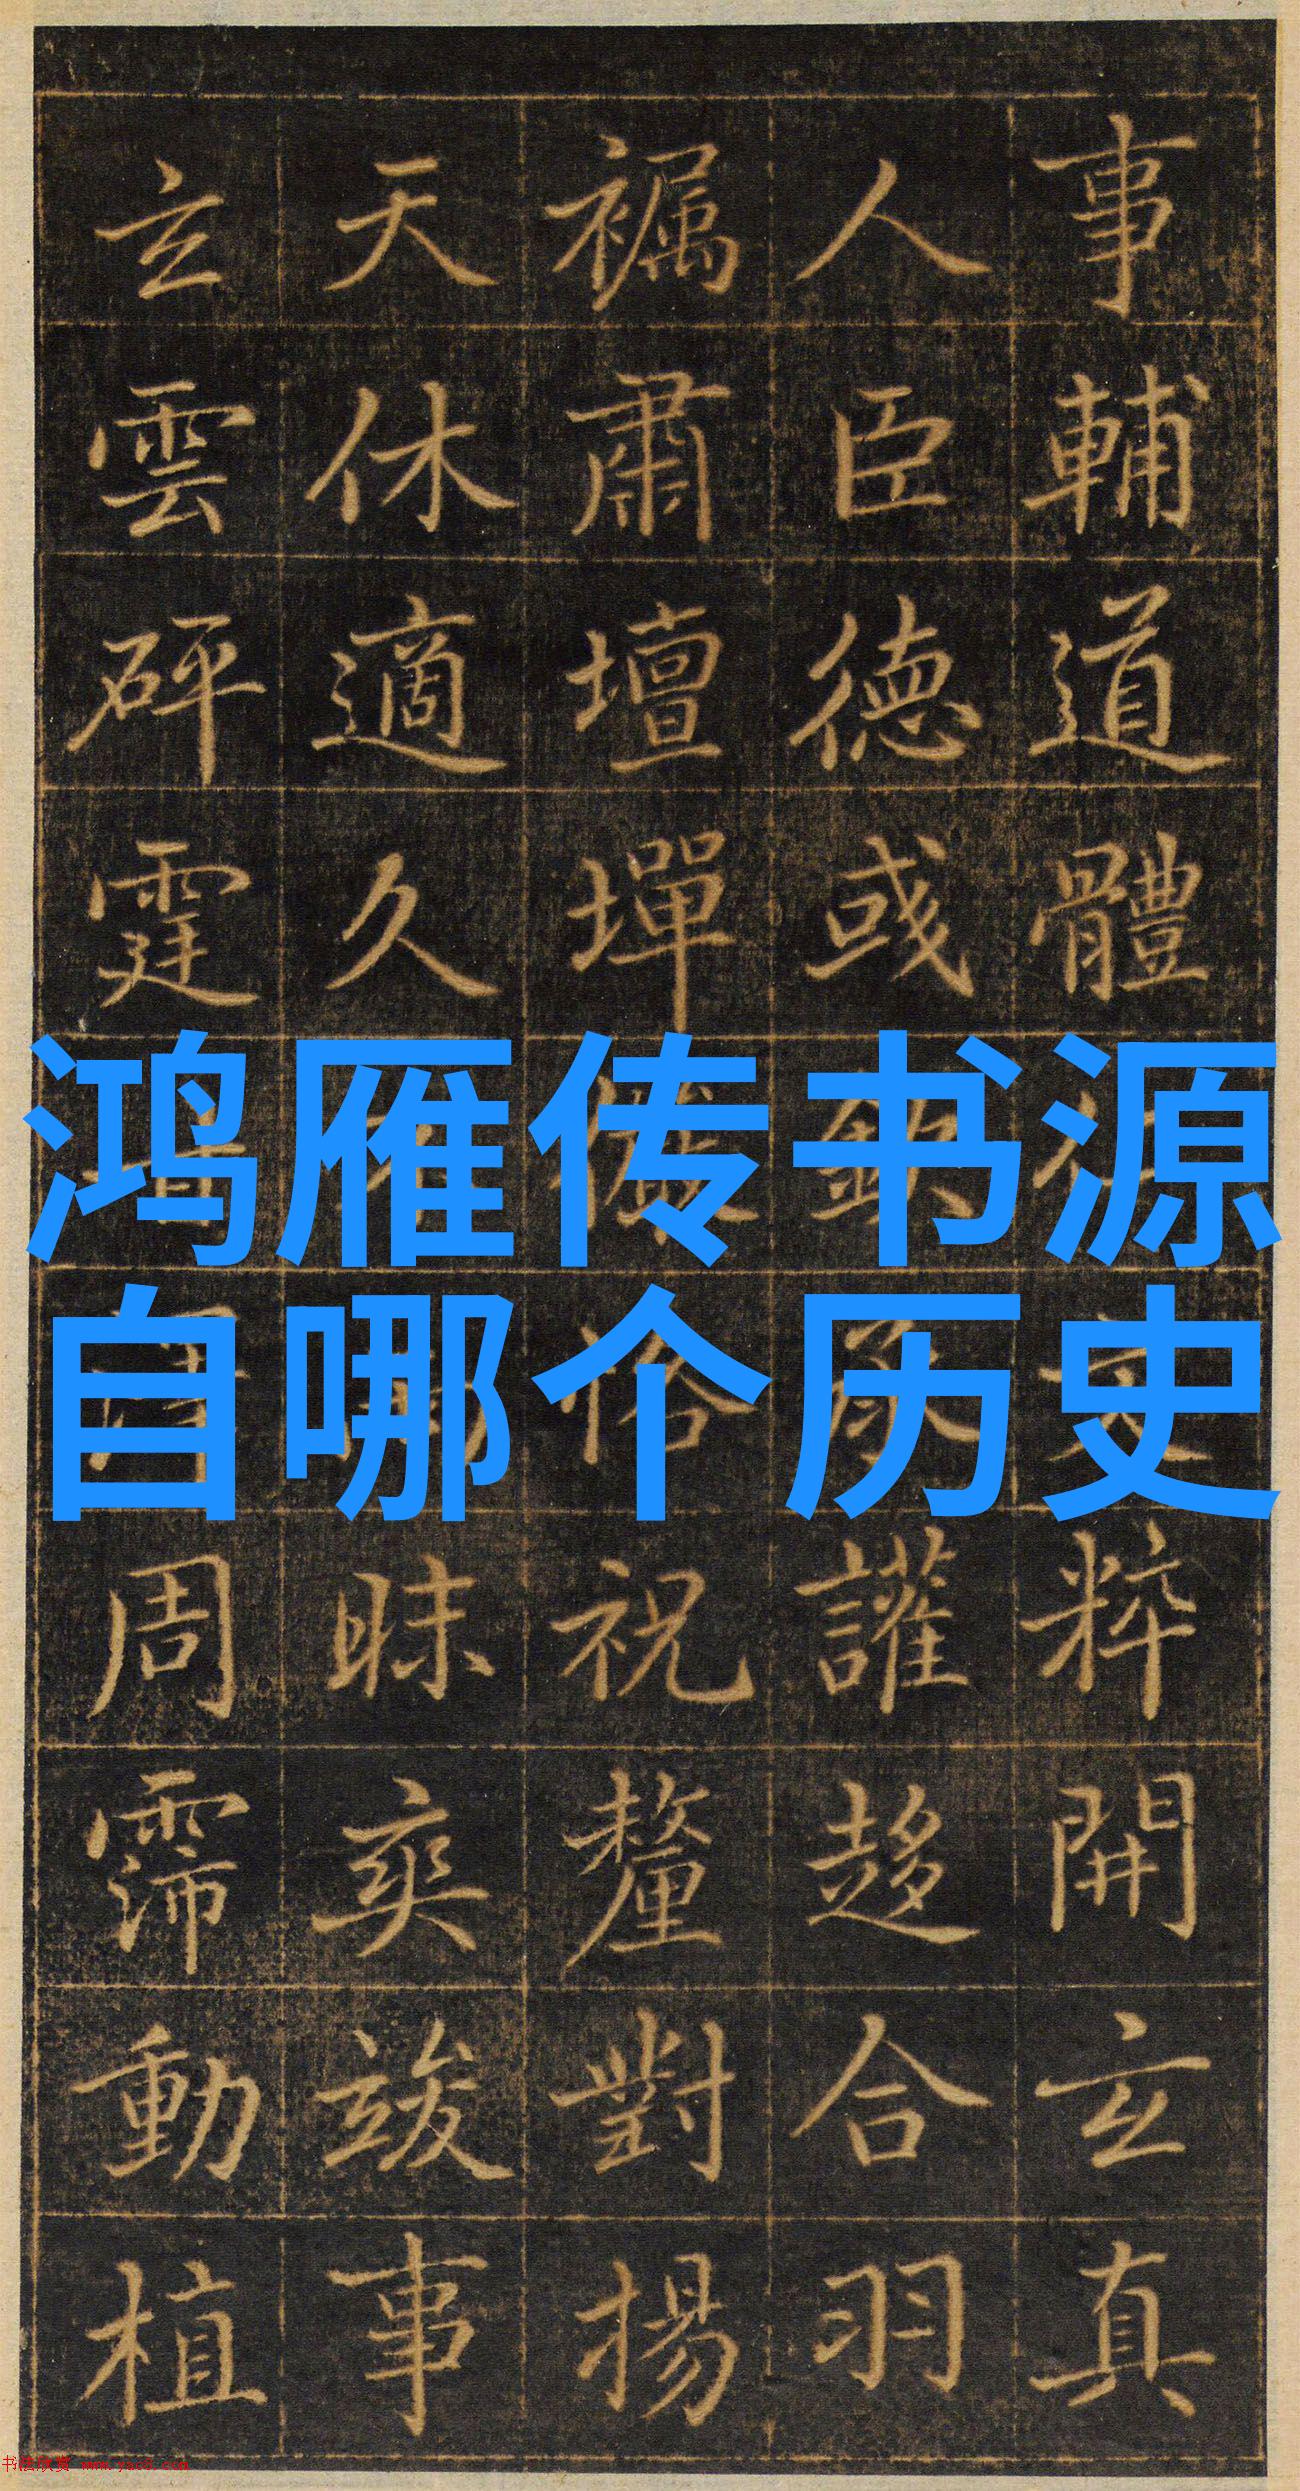 鸿雁传书源
自哪个历史
事輔道體粹開玄真
人臣德彧欽讙趍合羽
肅壇墠儀恪祝釐對揚
天休適久昧爽竣事
玄雲砰霆周霈動植
书法欣赏 www.yac8.com